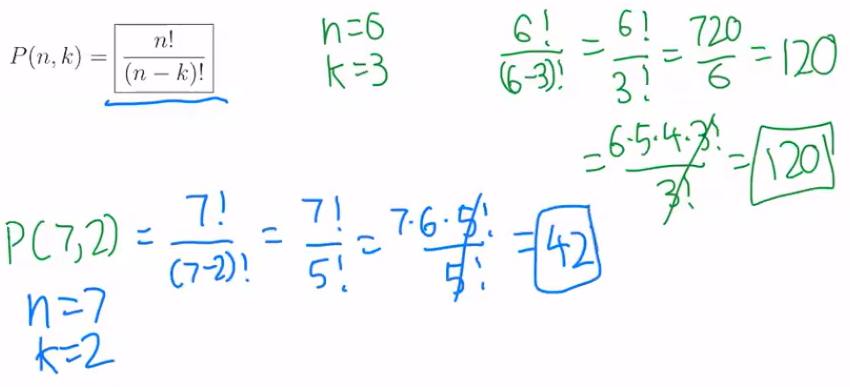 P(n, k) = n!/(n − k)!
n=6
k=3
6!/(6-3)! = 6!/3! = 720/6 = 120
= 6·5·4·3!/3! = 120
P(7,2) = 7!/(7-2)! = 7!/5! = 7·6·5!/5! = 42
n=7
k=2